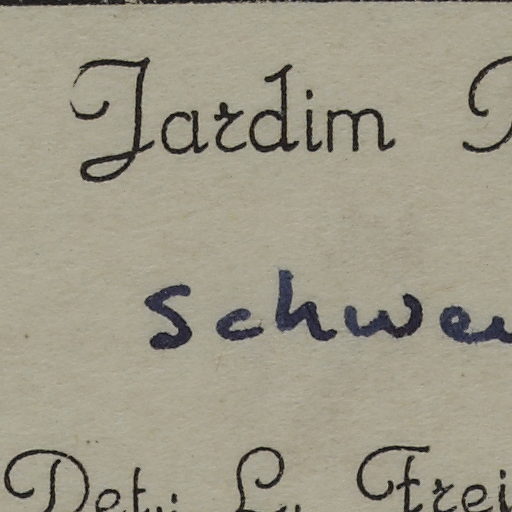 Jardim
Schwe
Det.: L. Frei